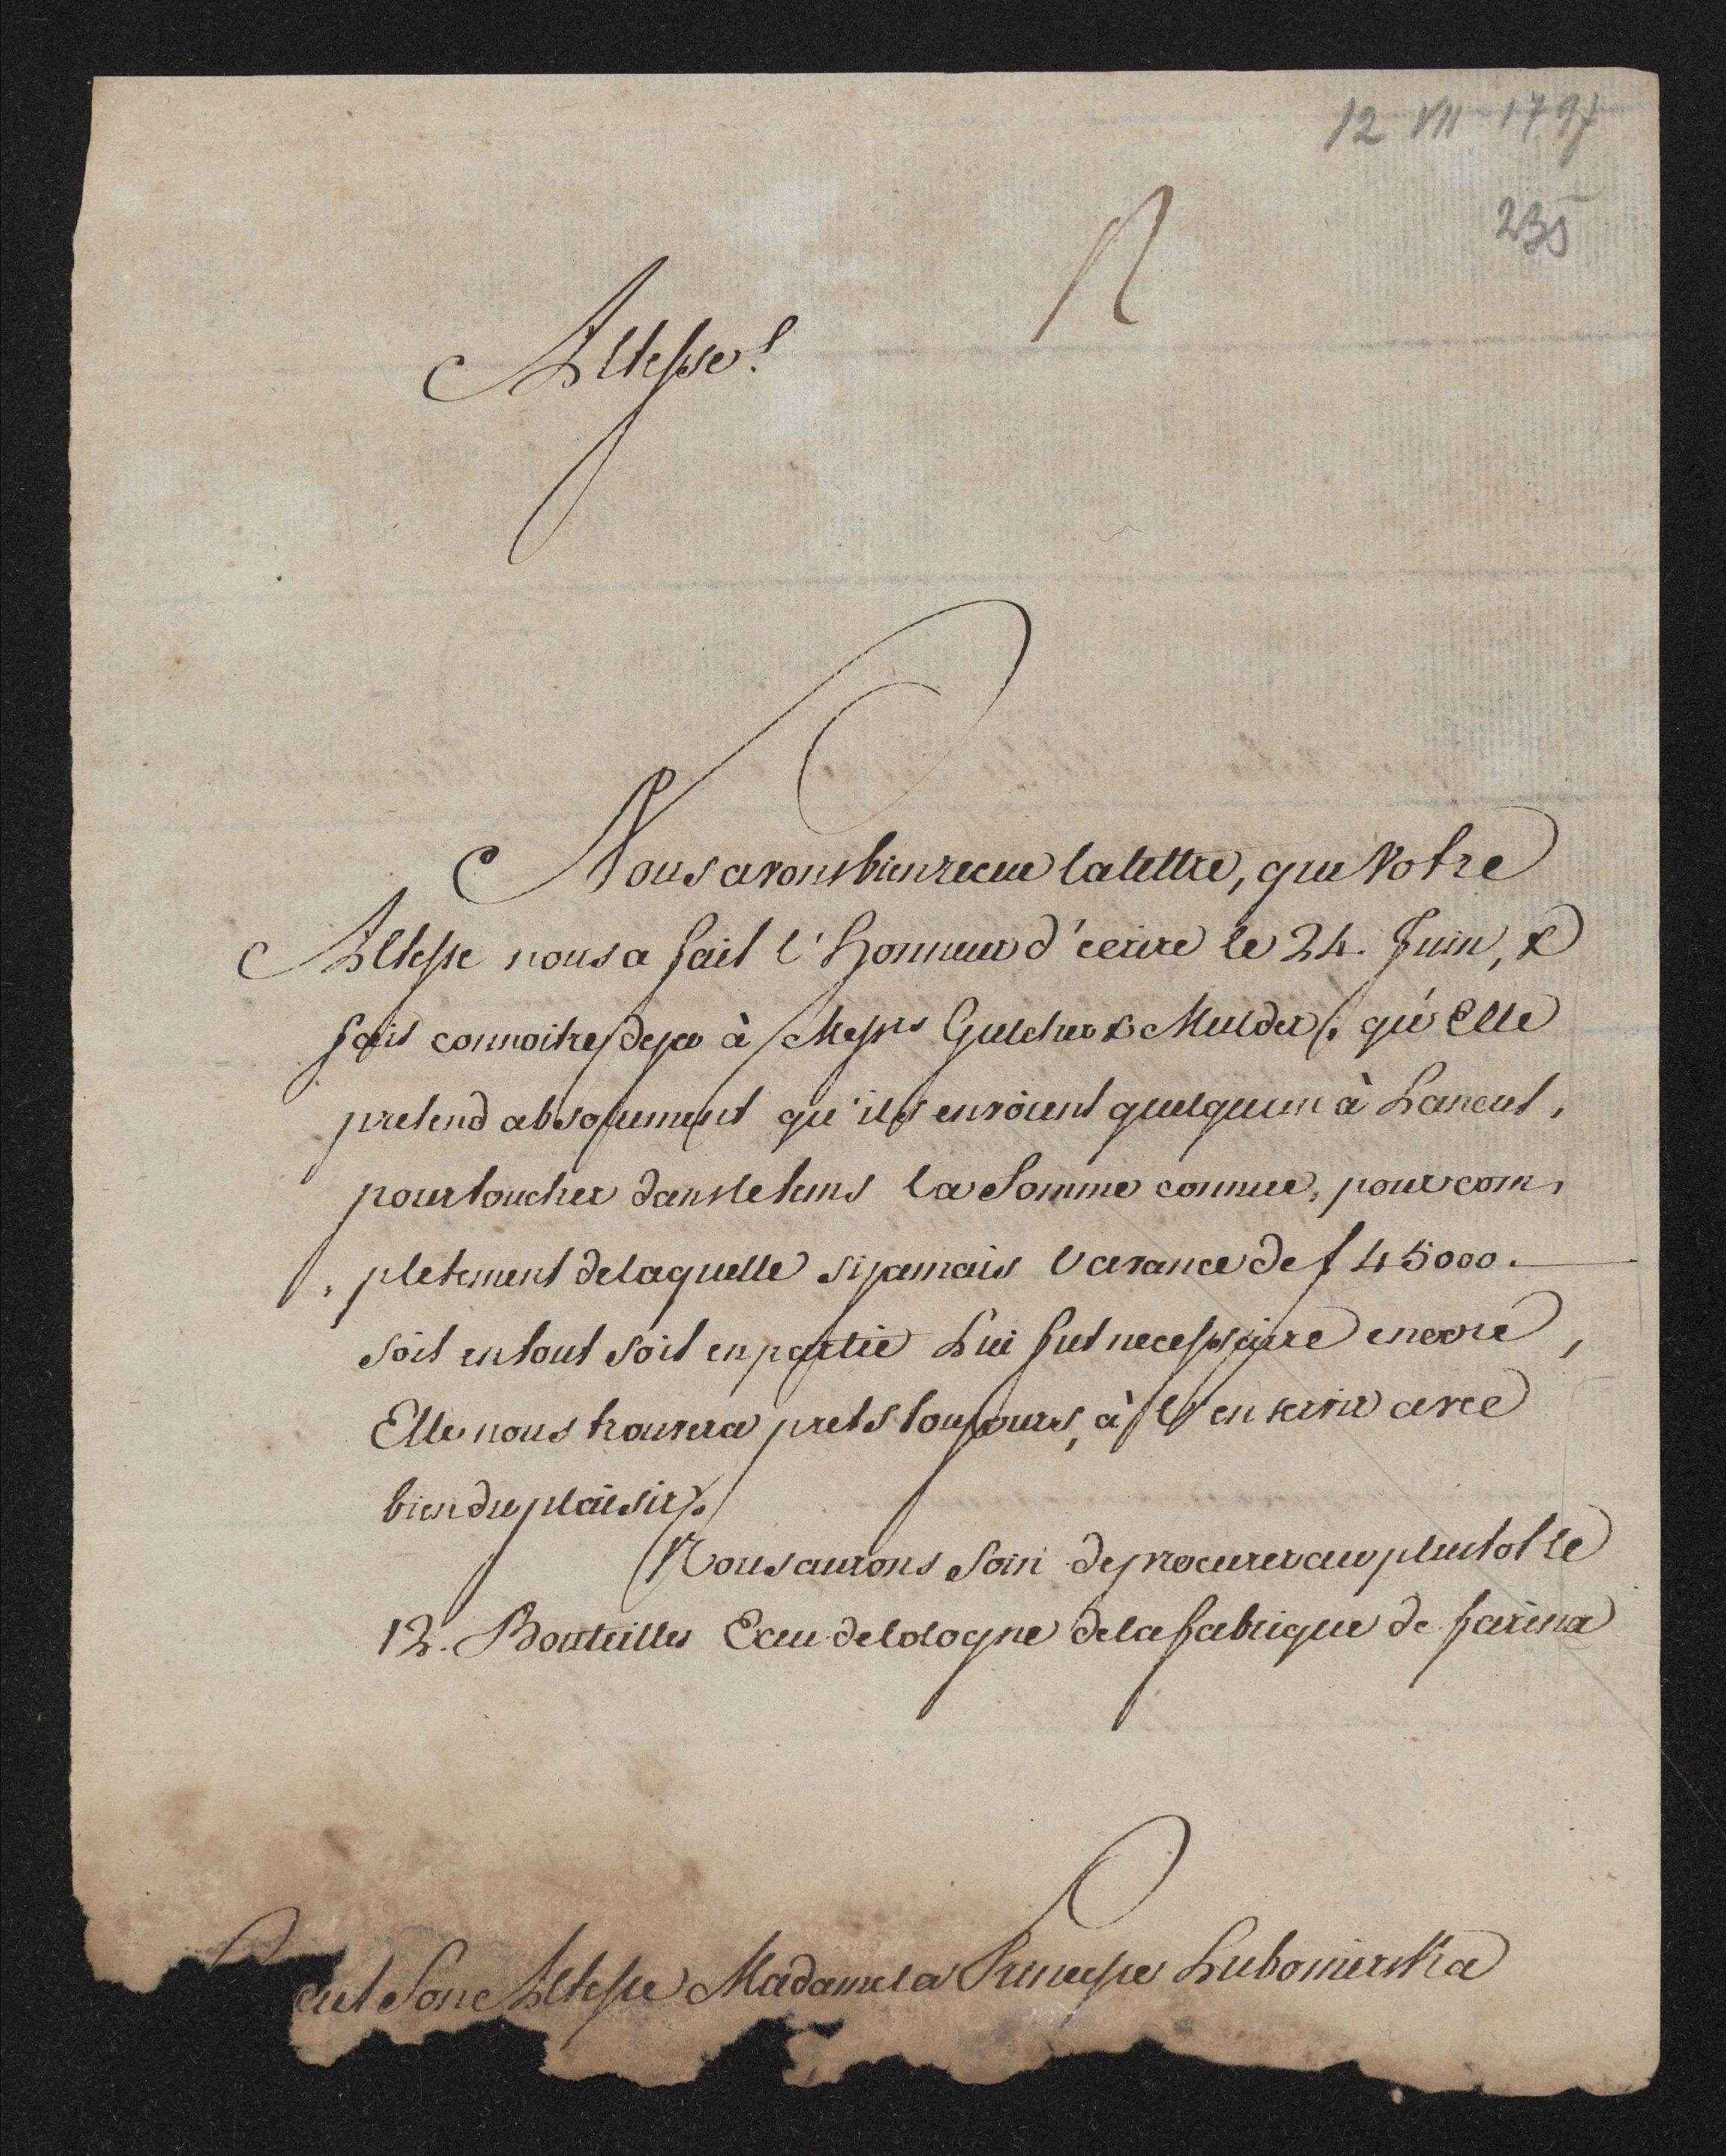 12 VII 1797
235
Altesse!
Nous avons bien recue la lettre, que Votre
Altesse nous a fait l'Honneur d'ecrire le 24. Juin, &
fait connoitre deja à Messrs Gulcher & Mulder, qu'Elle
pretend absolument qu'ils envoient quelquun à Lancut,
pour toucher dans le tems la Somme connue, pour com,
,pletement de laquelle si jamais l'avance de f 45000.
soit en tout soit en partie Lui fut necessaire encore,
Elle nous trouvera prets toujours, à l'en servir avec
bien du plaisir.
Nous aurons soin de procurer au plustot le
12. Bouteilles Eau de Cologne de la fabrique de farina
cut Son Altesse Madame la Princesse Lubomirska